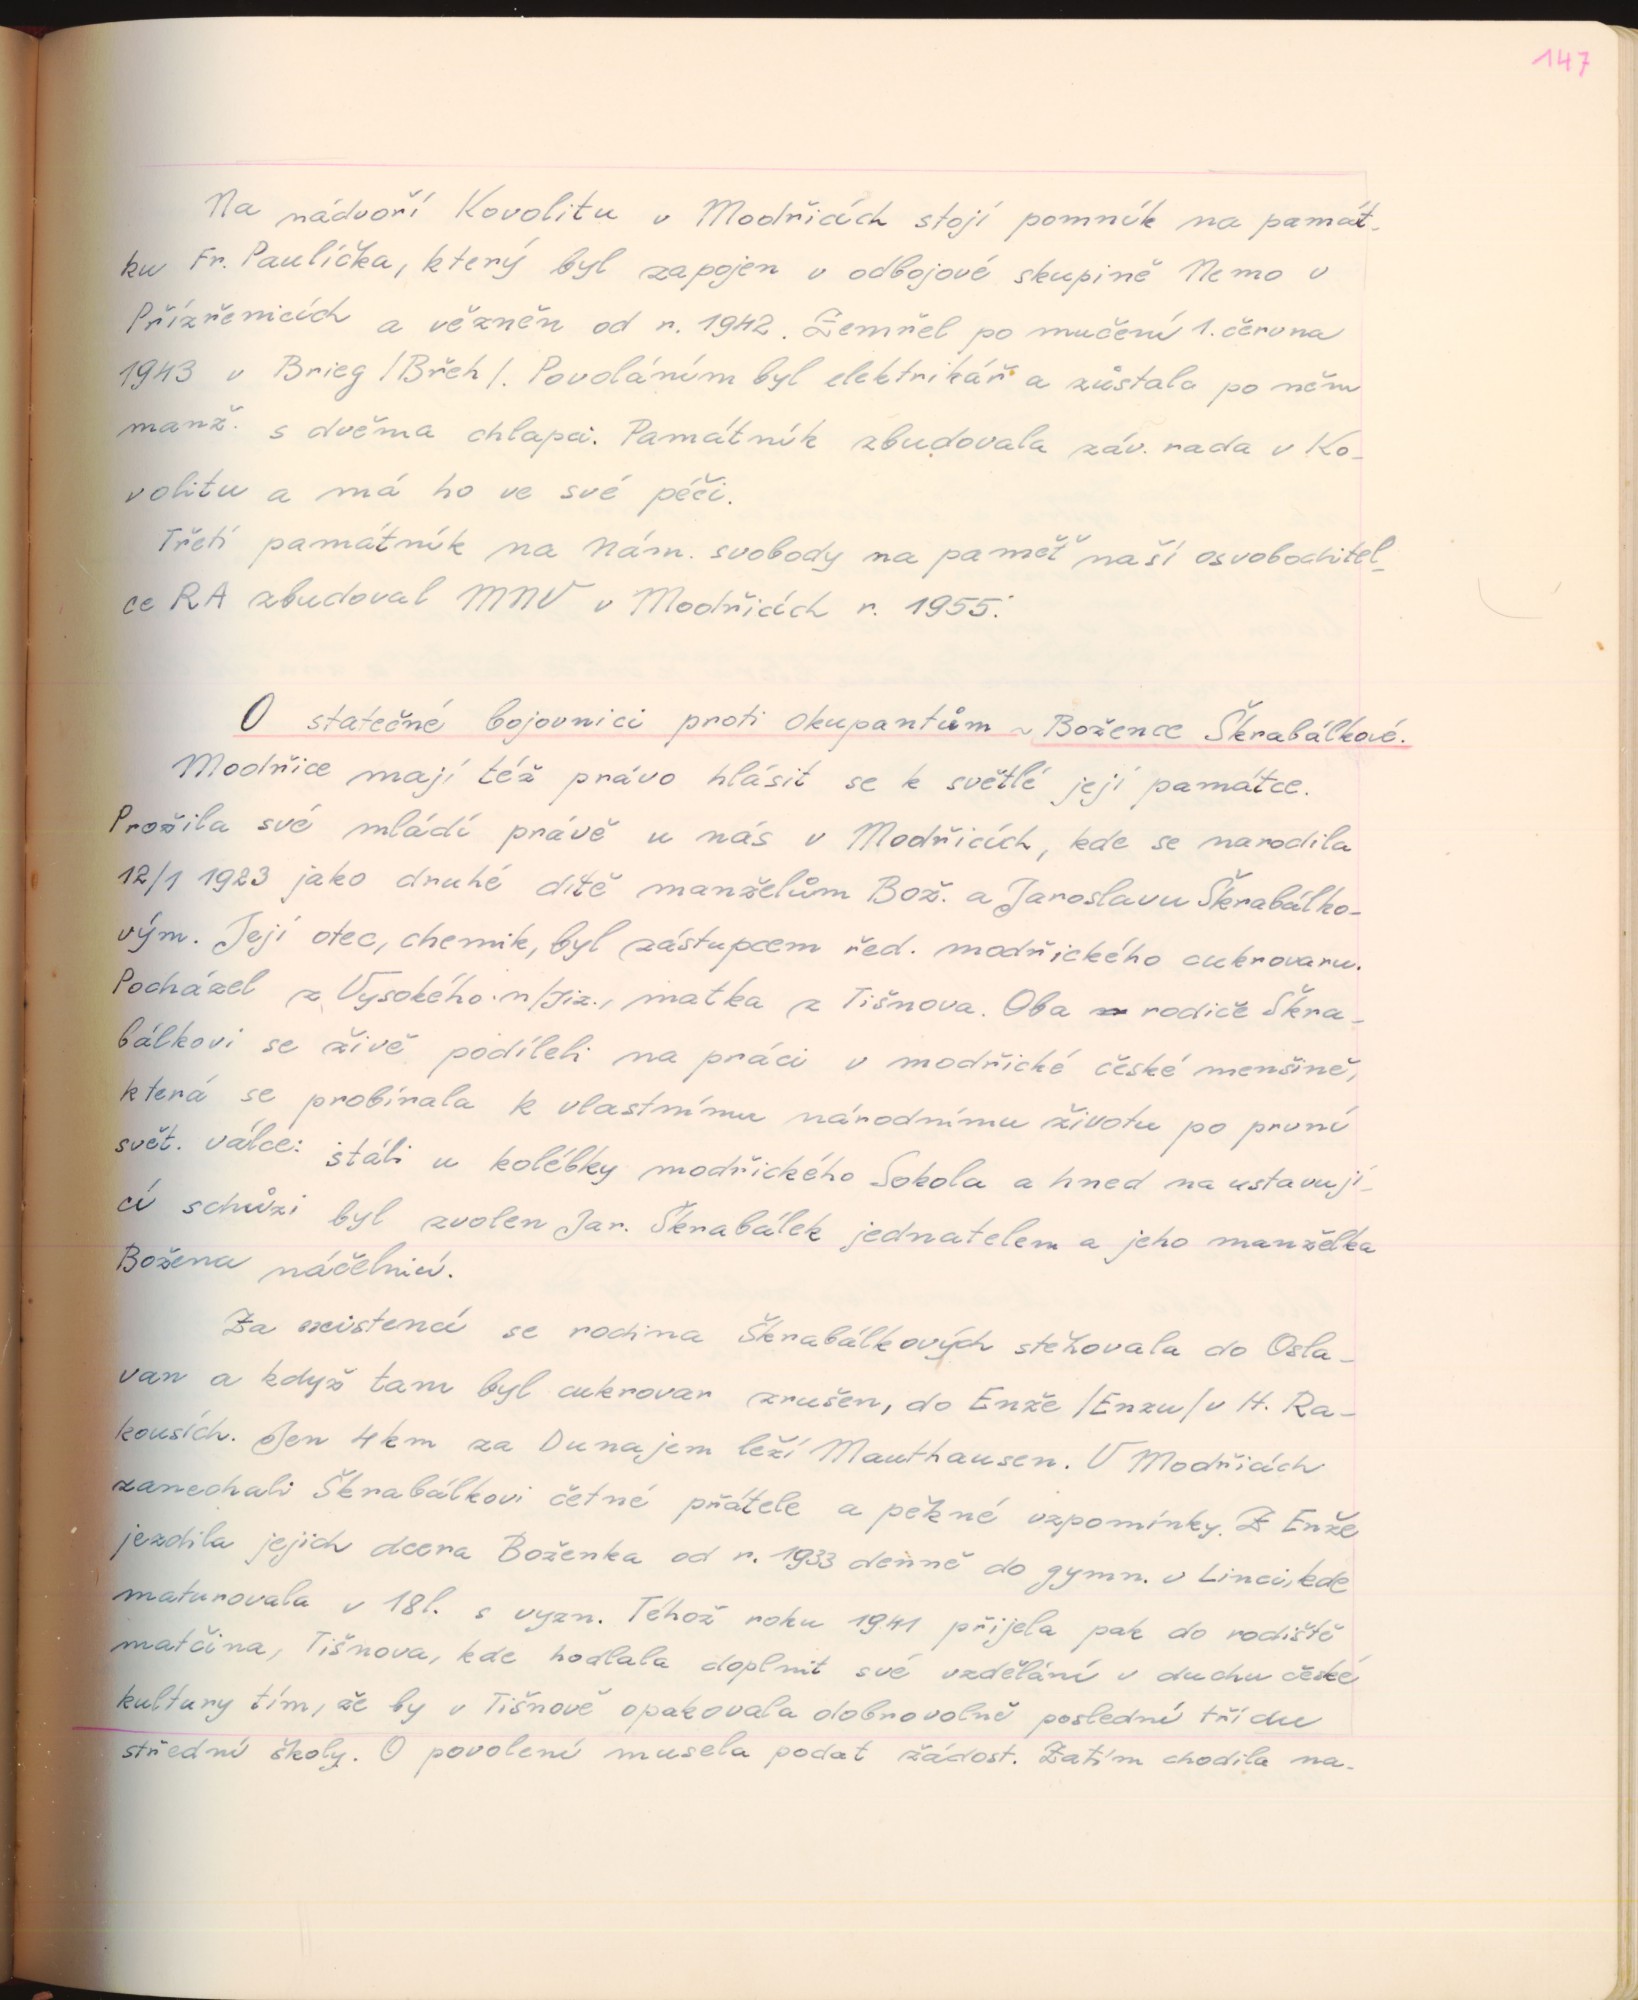 147
Na nádvoří Kovolitu v Modřicích stojí pomník na památ-
ku Fr. Paulíčka, který byl zapojen v odbojové skupině Nemo v
Přízřenicích a vězněn od r. 1942. Zemřel po mučení 1. června
1943 v Brieg /Břeh/. Povoláním byl elektrikář a zůstala po něm
manž. s dvěma chlapci. Památník zbudovala záv. rada v Ko-
volitu a má ho ve své péči.
Třetí památník na Nám. svobody na paměť naší osvoboditel-
ce RA zbudoval MNV v Modřicích r. 1955.
O statečné bojovnici proti okupantům ~ Božence Škrabálkové.
Modřice mají též právo hlásit se k světlé její památce.
Prožila své mládí právě u nás v Modřicích, kde se narodila
12/1 1923 jako druhé dítě manželům Bož. a Jaroslavu Škrabálko-
vým. Její otec, chemik, byl zástupcem řed. modřického cukrovaru.
Pocházel z Vysokého n/Jiz., matka z Tišnova. Oba rodiče Škra-
bálkovi se živě podíleli na práci v modřické české menšině,
která se probírala k vlastnímu národnímu životu po první
svět. válce: stáli u kolébky modřického Sokola a hned na ustavují-
cí schůzi byl zvolen Jar. Škrabálek jednatelem a jeho manželka
Božena náčelnicí.
Za existencí se rodina Škrabálkových stěhovala do Osla-
van a když tam byl cukrovar zrušen, do Enže /Enzu/ v H. Ra-
kousích. Jen 4 km za Dunajem leží Mauthausen. V Modřicích
zanechali Škrabálkovi četné přátele a pěkné vzpomínky. Z Enže
jezdila jejich dcera Boženka od r. 1933 denně do gymn. v Linci, kde
maturovala v 18l. s vyzn. Téhož roku 1941 přijela pak do rodiště
matčina, Tišnova, kde hodlala doplnit své vzdělání v duchu české
kultury tím, že by v Tišnově opakovala dobrovolně poslední třídu
střední školy. O povolení musela podat žádost. Zatím chodila na-